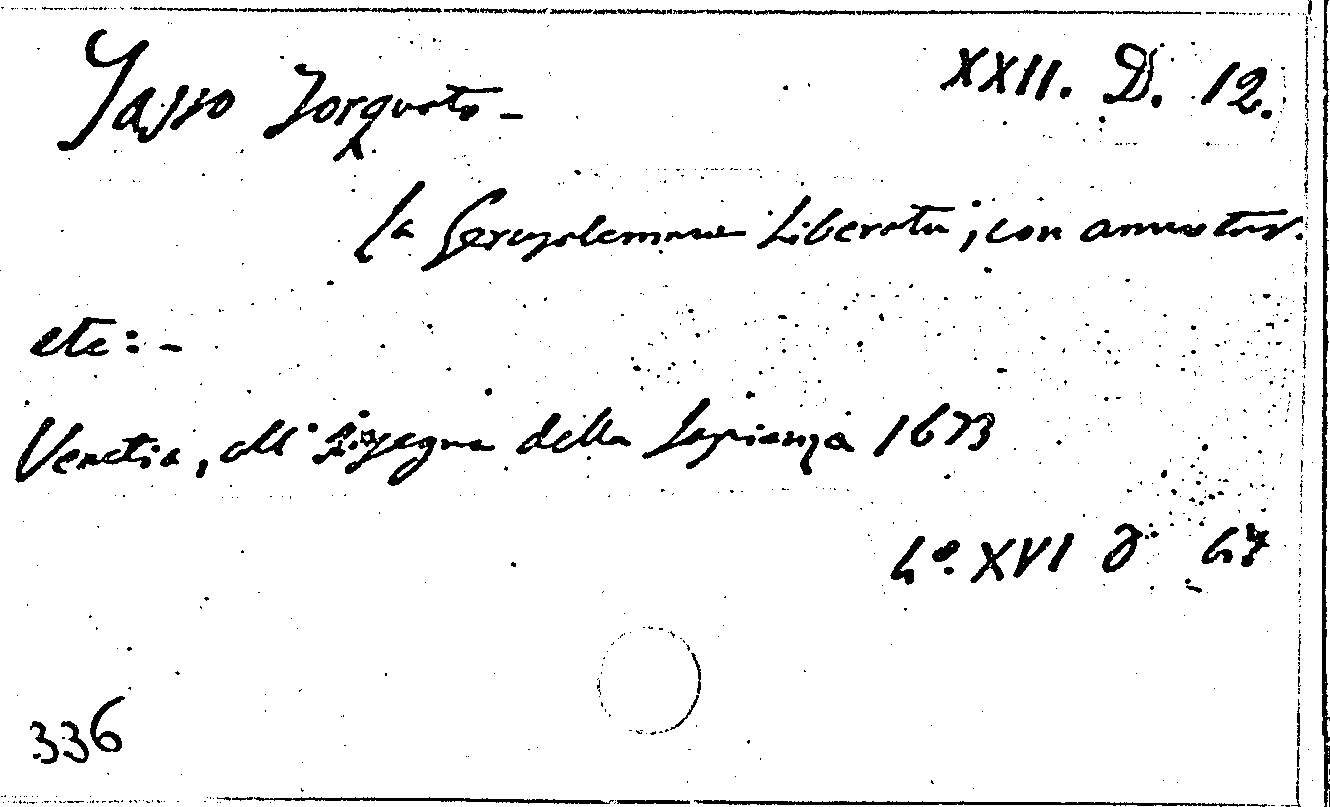 Tasso Torquato - XXII. D. 12.
La Gerusalemme Liberata, con annotaz.
etc: -
Venetia, all'Insegna della Sapienza 1673
4º. XVI 67
336